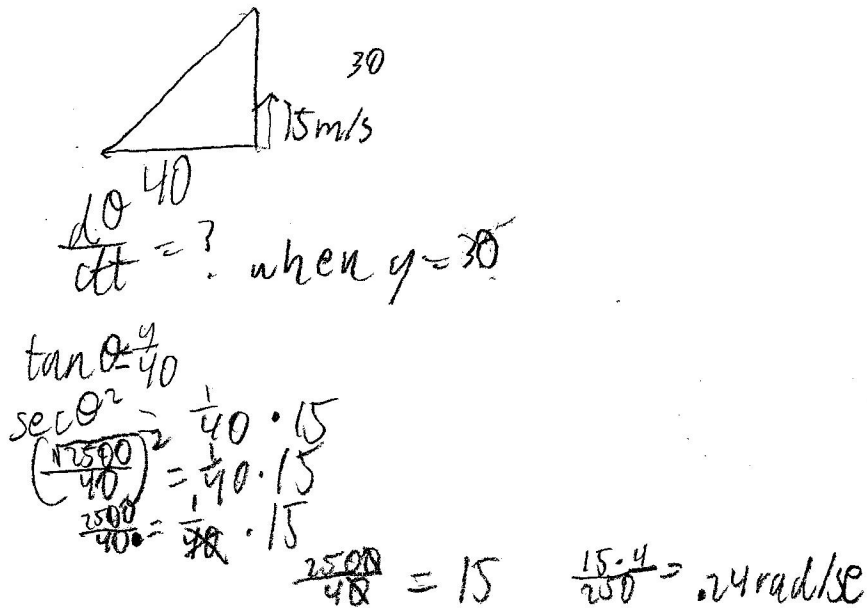 30
15m/s
40
dθ/dt = ? when y = 30
tan θ = y/40
sec θ² = 1/40 · 15
(√2500/40)² = 1/40 · 15
2500/40 = 1/40 · 15
2500/40 = 15
15·4/250 = .24 rad/se